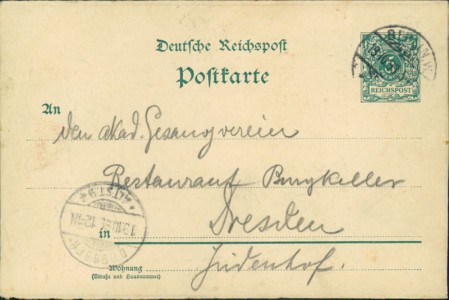 Deutsche Reichspost
Postkarte
REICHSPOST
An
den akad. Gesangverein
Restaurant Burgkeller
in Dresden
Judenhof.
Wohnung
(Straße und Hausnummer)